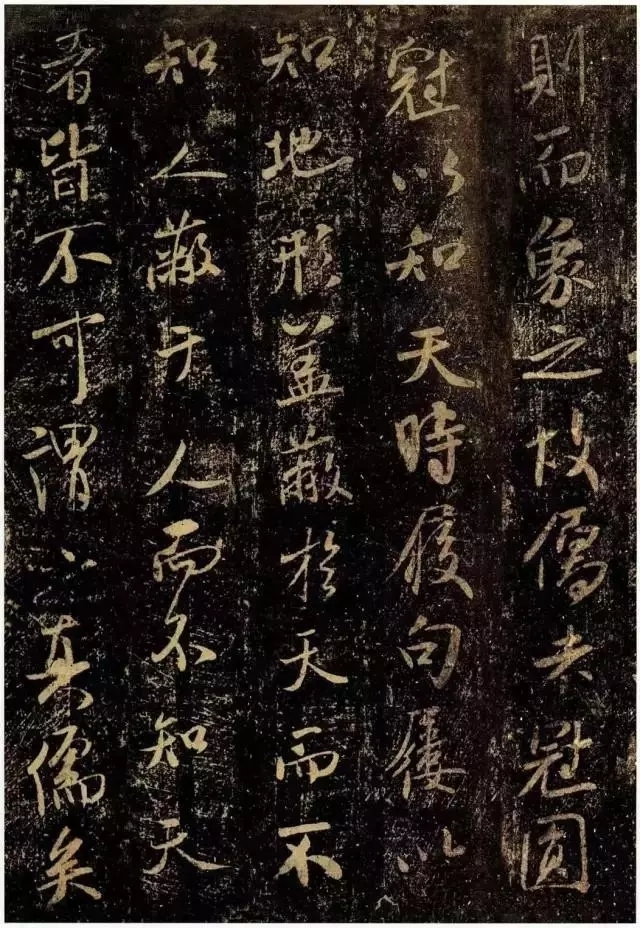 則而象之故儒者冠圜
冠以知天時履句屨以
知地形盖蔽於天而不
知人蔽于人而不知天
者皆不可謂之真儒矣